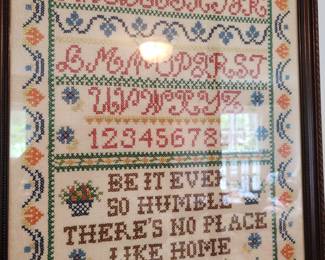 LMNOPQRST
UVWXYZ
12345678
BE IT EVER
SO HUMBLE
THERE'S NO PLACE
LIKE HOME